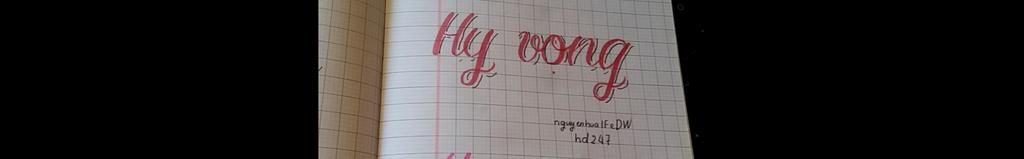 Hy vọng
nguyenhualFeDW
hd247